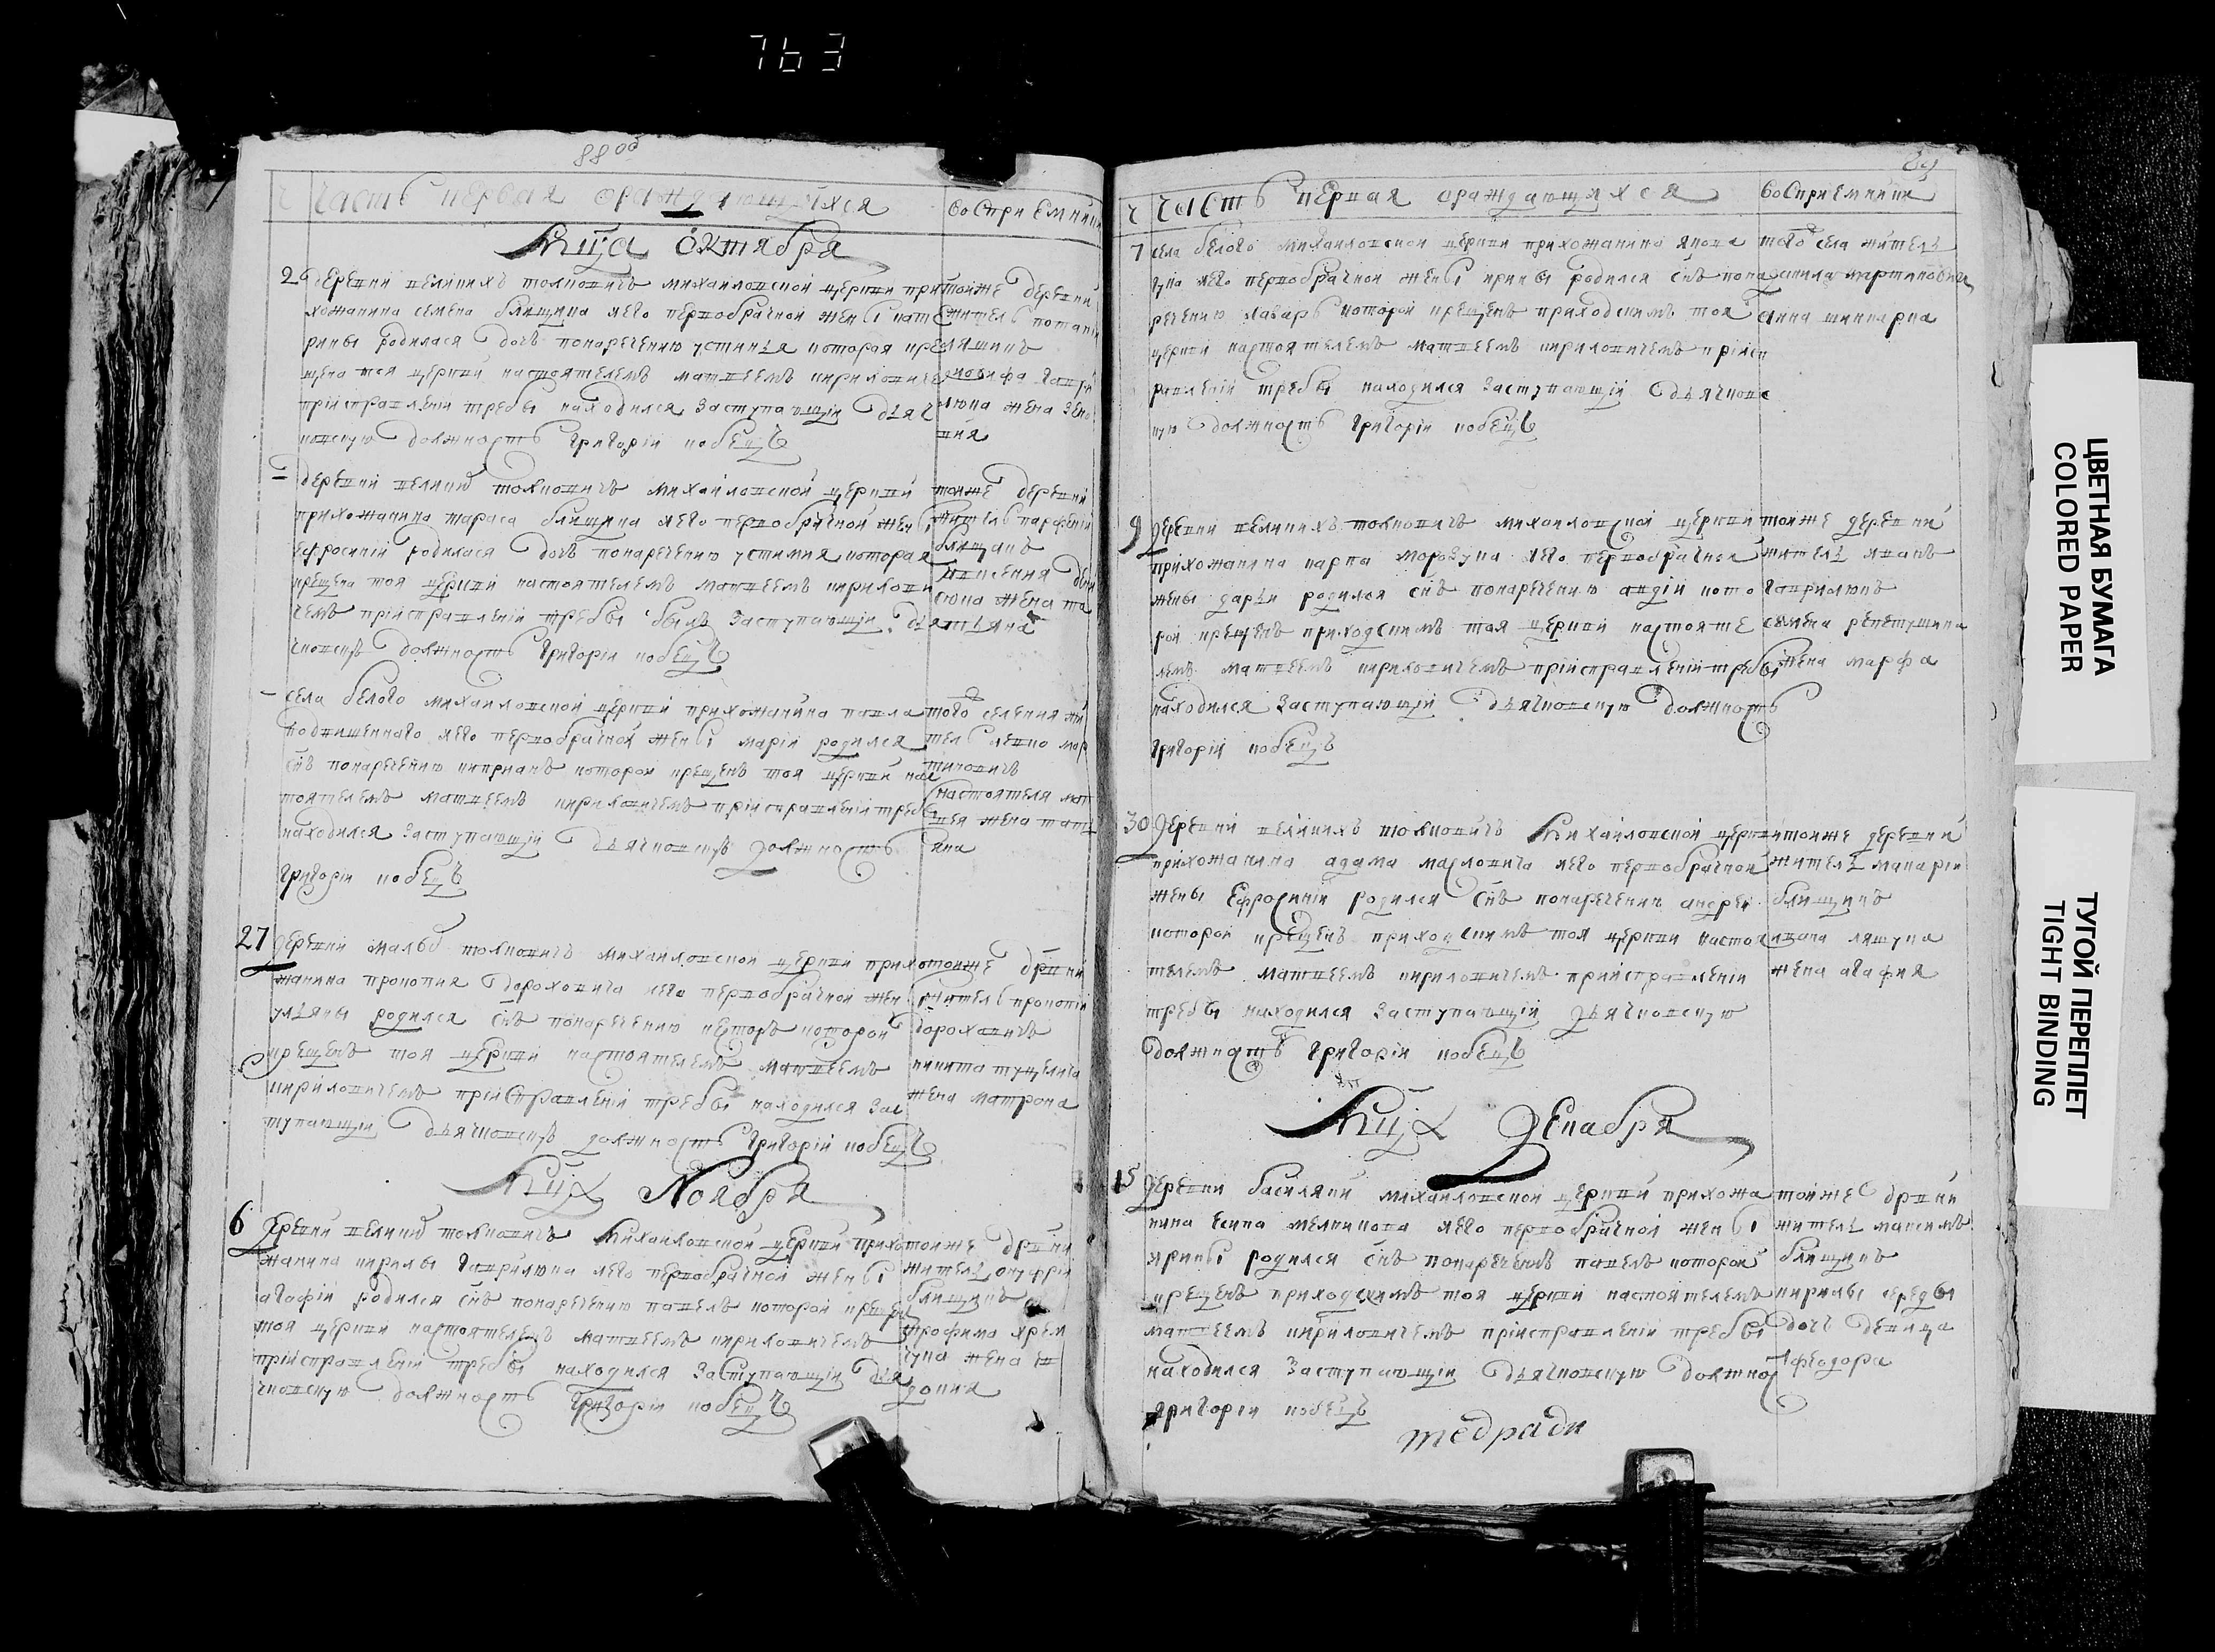 763
88 об
Часть первая ораждающихся
Восприемники
Мца октября
2 деревни великихъ толковичъ михаиловской церкви при
хожанина семена блищика яего первобрачной жены кате
рины родилася дочь понаречению устиния которая кре
щена тоя церкви настоятелемъ матвеемъ кириловиче
приисправлении требы находился заступающiи дьяч
ковскую должность григории кобецъ
тоиже деревни
житель потапи
ляшикъ
иосифа гаври
люка жена зено
вия
деревни великих толковичъ михаиловской церкви
прихожанина тараса блищика яего первобрачной жены
ефросинiи родилася дочь понаречению устимия которая
крещена тоя церкви настоятелемъ матвеемъ кирилови
чемъ приисправлении требы былъ заступающiи дья
чковску должность григории кобецъ
тоиже деревни
житель парфени
блищикъ
жена та
тияна
села белого михаиловской церкви прихожанина павла
яего первобрачной жены марiи родился
снъ понаречению киприанъ которой крещенъ тоя церкви нас
тоятелемъ матвеемъ кириловичемъ приисправлении требы
находился заступающiи дьячковску должность
григории кобецъ
того селения жи
тель левко мар
тиновичъ
настоятеля мат
вея жена тати
яна
27 деревни малых толковичъ михаиловской церкви прихо
жанина прокопия дороховича яего первобрачной жен
улияны родился снъ понаречению несторъ которой
крещенъ тоя церкви настоятелемъ матвеемъ
кириловичемъ приисправлении требы находился зас
тупающiи дьячковску должность григории кобецъ
тоиже дрвни
житель прокопiи
дороховичъ
никита тущелича
жена матрона
Мца Ноября
6 деревни великих толковичъ Михаиловской церкви прихо
жанина кирилы гаврилюка яего первобрачной жены
агафiи родился снъ понаречению павелъ которой крещен
тоя церкви настоятелемъ матвеемъ кириловичемъ
приисправлении требы находился заступающiи дья
чковскую должность григории кобецъ
тоиже дрвни
житель онуфрiи
блищикъ
трофима хрем
чука жена ев
докия
89
ч Часть первая ораждающихся
Восприемники
7 села белого михаиловской церкви прихожанина якова
яего первобрачной жены ирины родился снъ пона
речению лазаръ которой крещенъ приходскимъ тоя
церкви настоятелемъ матвеемъ кириловичемъ приисп
равлении требы находился заступающiи дьячковс
кую должность григории кобецъ
того села житель
данила мартинович
анна шинкарка
9 деревни великихъ толковичъ михаиловской церкви
прихожанина карпа морозука яего первобрачной
жены дарьи родился снъ понаречению авдiй кото
рой крещенъ приходскимъ тоя церкви настояте
лемъ матвеемъ кириловичемъ приисправлении требы
находился заступающiи дьячковскую должность
григории кобецъ
тоиже деревни
житель иванъ
гаврилюкъ
семена репетушика
жена марфа
30 деревни великихъ толковичъ Михаиловской церкви
прихожанина адама масловича яего первобрачной
жены Ефросинiи родился снъ понаречению андреи
которой крещенъ приходскимъ тоя церкви настоя
телемъ матвеемъ кириловичемъ приисправлении
требы находился заступающiи дьячковскую
должность григории кобецъ
тоиже деревни
житель макарiи
блищикъ
ляшука
жена агафия
Мца Декабря
15 деревни василяки михаиловской церкви прихожа
нина есипа мелникова яего первобрачной жены
ирины родился снъ понаречению павелъ которой
крещенъ приходскимъ тоя церкви настоятелемъ
матвеемъ кириловичемъ приисправлении требы
находился заступающiи дьячковскую должнос
григории кобецъ
тоиже дрвни
житель максимъ
блищикъ
кирилы середы
дочь девица
феодора
тедради
ЦВЕТНАЯ БУМАГА
COLORED PAPER
ТУГОЙ ПЕРЕПЛЕТ
TIGHT BINDING